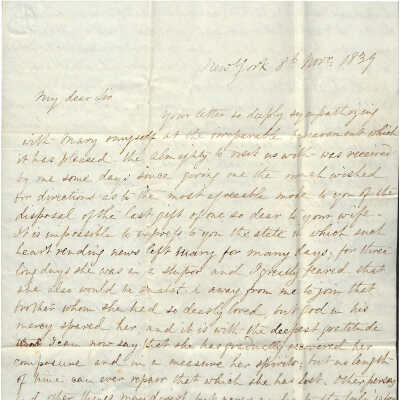 New York 8th Novr. 1839
My dear Sir
Your letter so deeply sympathizing
with Mary & myself at the irreparable bereavement which
it has pleased the almighty to visit us with was received
by me some days since giving me the much wished
for directions as to the most agreeable mode to you of the
disposal of the last gift of one so dear to your wife.
It is impossible to express to you the state in which such
heart rending news left Mary for many days; for three
long days she was in a stupor and I greatly feared that
she also would be snatched away from me to join that
brother whom she had so dearly loved, but God in his
mercy spared her, and it is with the deepest gratitude
I can now say that she has gradually recovered her
composure and in a measure her spirits; but no length
of time can ever repair that which she has lost. Other
and other things may